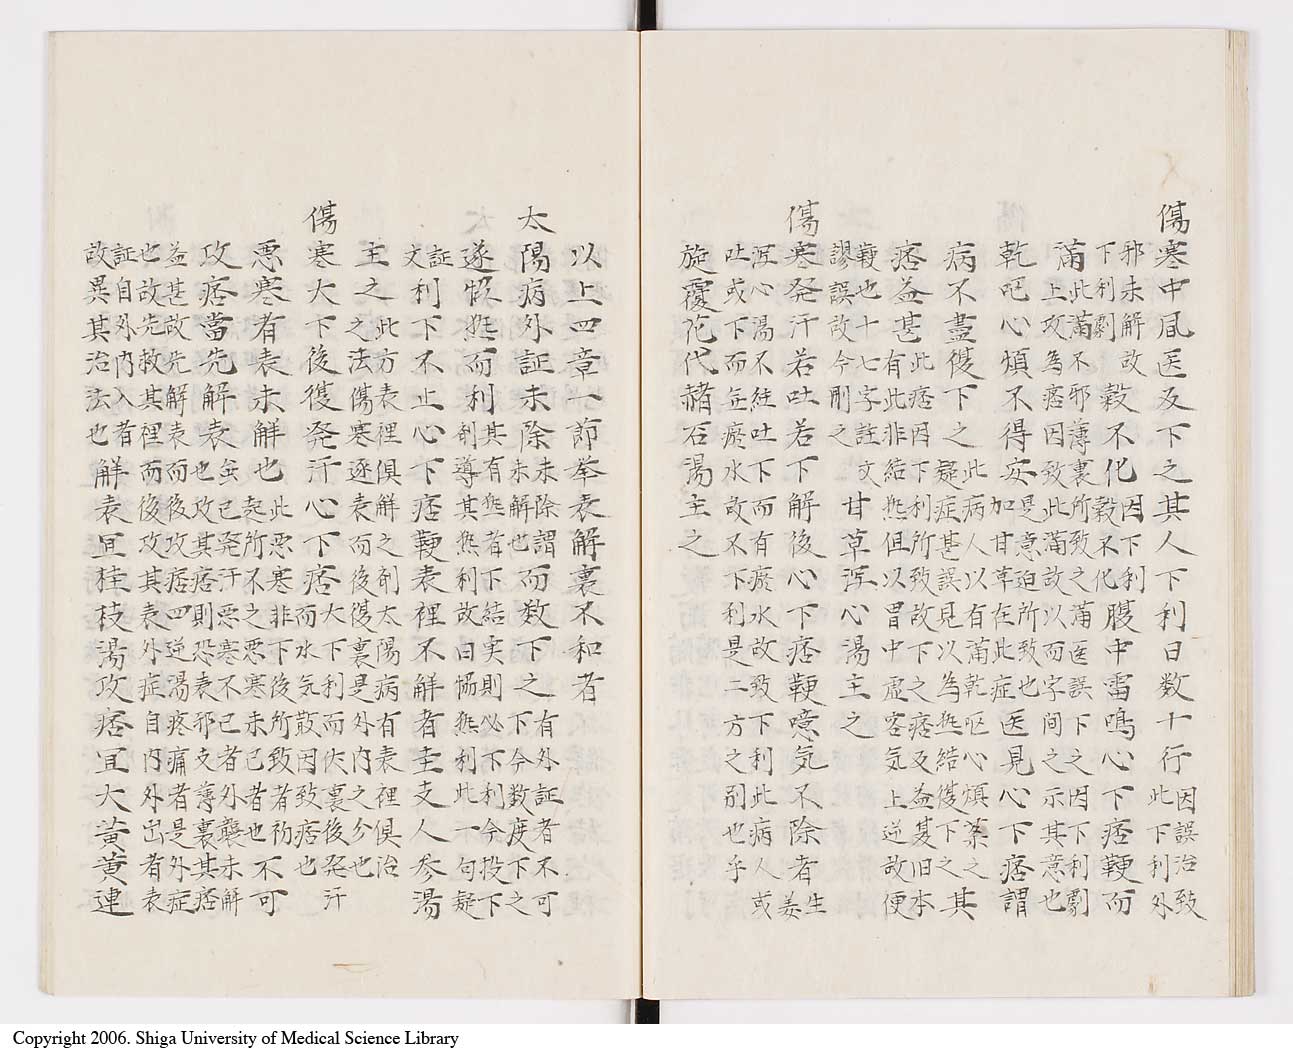 傷寒中風医反下之其人下利日数十行因誤治致此下利外
邪未解故下利劇穀不化因下利穀不化腹中雷鳴心下痞鞕而
満此満不邪薄裏所致之満医誤下之因下利劇上攻為痞因致此満故以而字間之示其意也
乾呕心煩不得安是意迫所致也加甘草在此症医見心下痞謂
病不盡復下之此病人以有満乾呕心煩薬之疑症甚誤見以為熱結復下之其
痞益甚此痞因下利所致故下之痞及益甚旧本有此非結熱但以胃中虚客気上逆故便
鞕也十七字註文謬誤改今刪之甘草瀉心湯主之
傷寒発汗若吐若下解後心下痞鞕噫気不除者生姜
瀉心湯不経吐下而有瘀水故致下利此病人或吐或下而無瘀水故不下利是二方之別也乎
旋覆花代赭石湯主之
以上四章一節挙表解裏不和者
太陽病外証未除未除謂未解也而数下之有外証者不可下今数度下之
遂恊熱而利其有熱者下結実則必下利今投下剤導其熱利故曰恊熱利此一句疑
証文利下不止心下痞鞕表裡不解者圭支人参湯
主之此方表裡倶解之剤太陽病有表裡倶治之法傷寒逐表而後復裏是外内之分也
傷寒大下後復発汗心下痞大下利而伏裏後発汗而水気敲因致痞也
悪寒者表未解也此悪寒非下後所致者初起所不之悪寒未已者也不可
攻痞當先解表無已発汗悪寒不已者外襲未解也攻其痞則恐表邪支薄裏其痞
益甚故先解表而後攻痞四逆湯疼痛者是外症也故先救其裡而後攻其表外症自内外出者表
証自外内入者故異其治法也解表宜桂枝湯攻痞宜大黄黄連
Copyright 2006. Shiga University of Medical Science Library